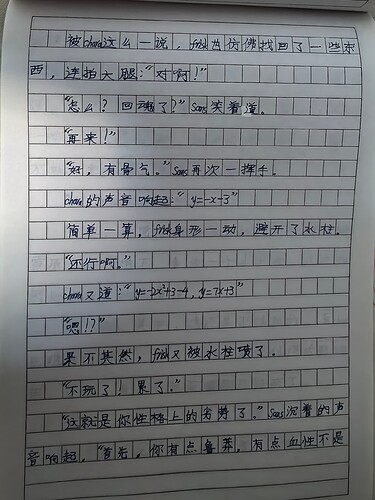 被chara这么一说，frisk也仿佛找回了一些东
西，连拍大腿："对啊！"
"怎么？回魂了？"Sans笑着道。
"再来！"
"好，有骨气。"Sans再次一挥手。
chara的声音响起："y=-x-3"
简单一算，frisk身形一动，避开了水柱。
"还行啊。"
chara又道："y=-2x²+3-4，y=7x+3"
"嗯!?"
果不其然，frisk又被水柱喷了。
"不玩了！累了。"
"这就是你性格上的劣势了。"Sans沉着的声
音响起，"首先，你有点鲁莽，有点血性不是